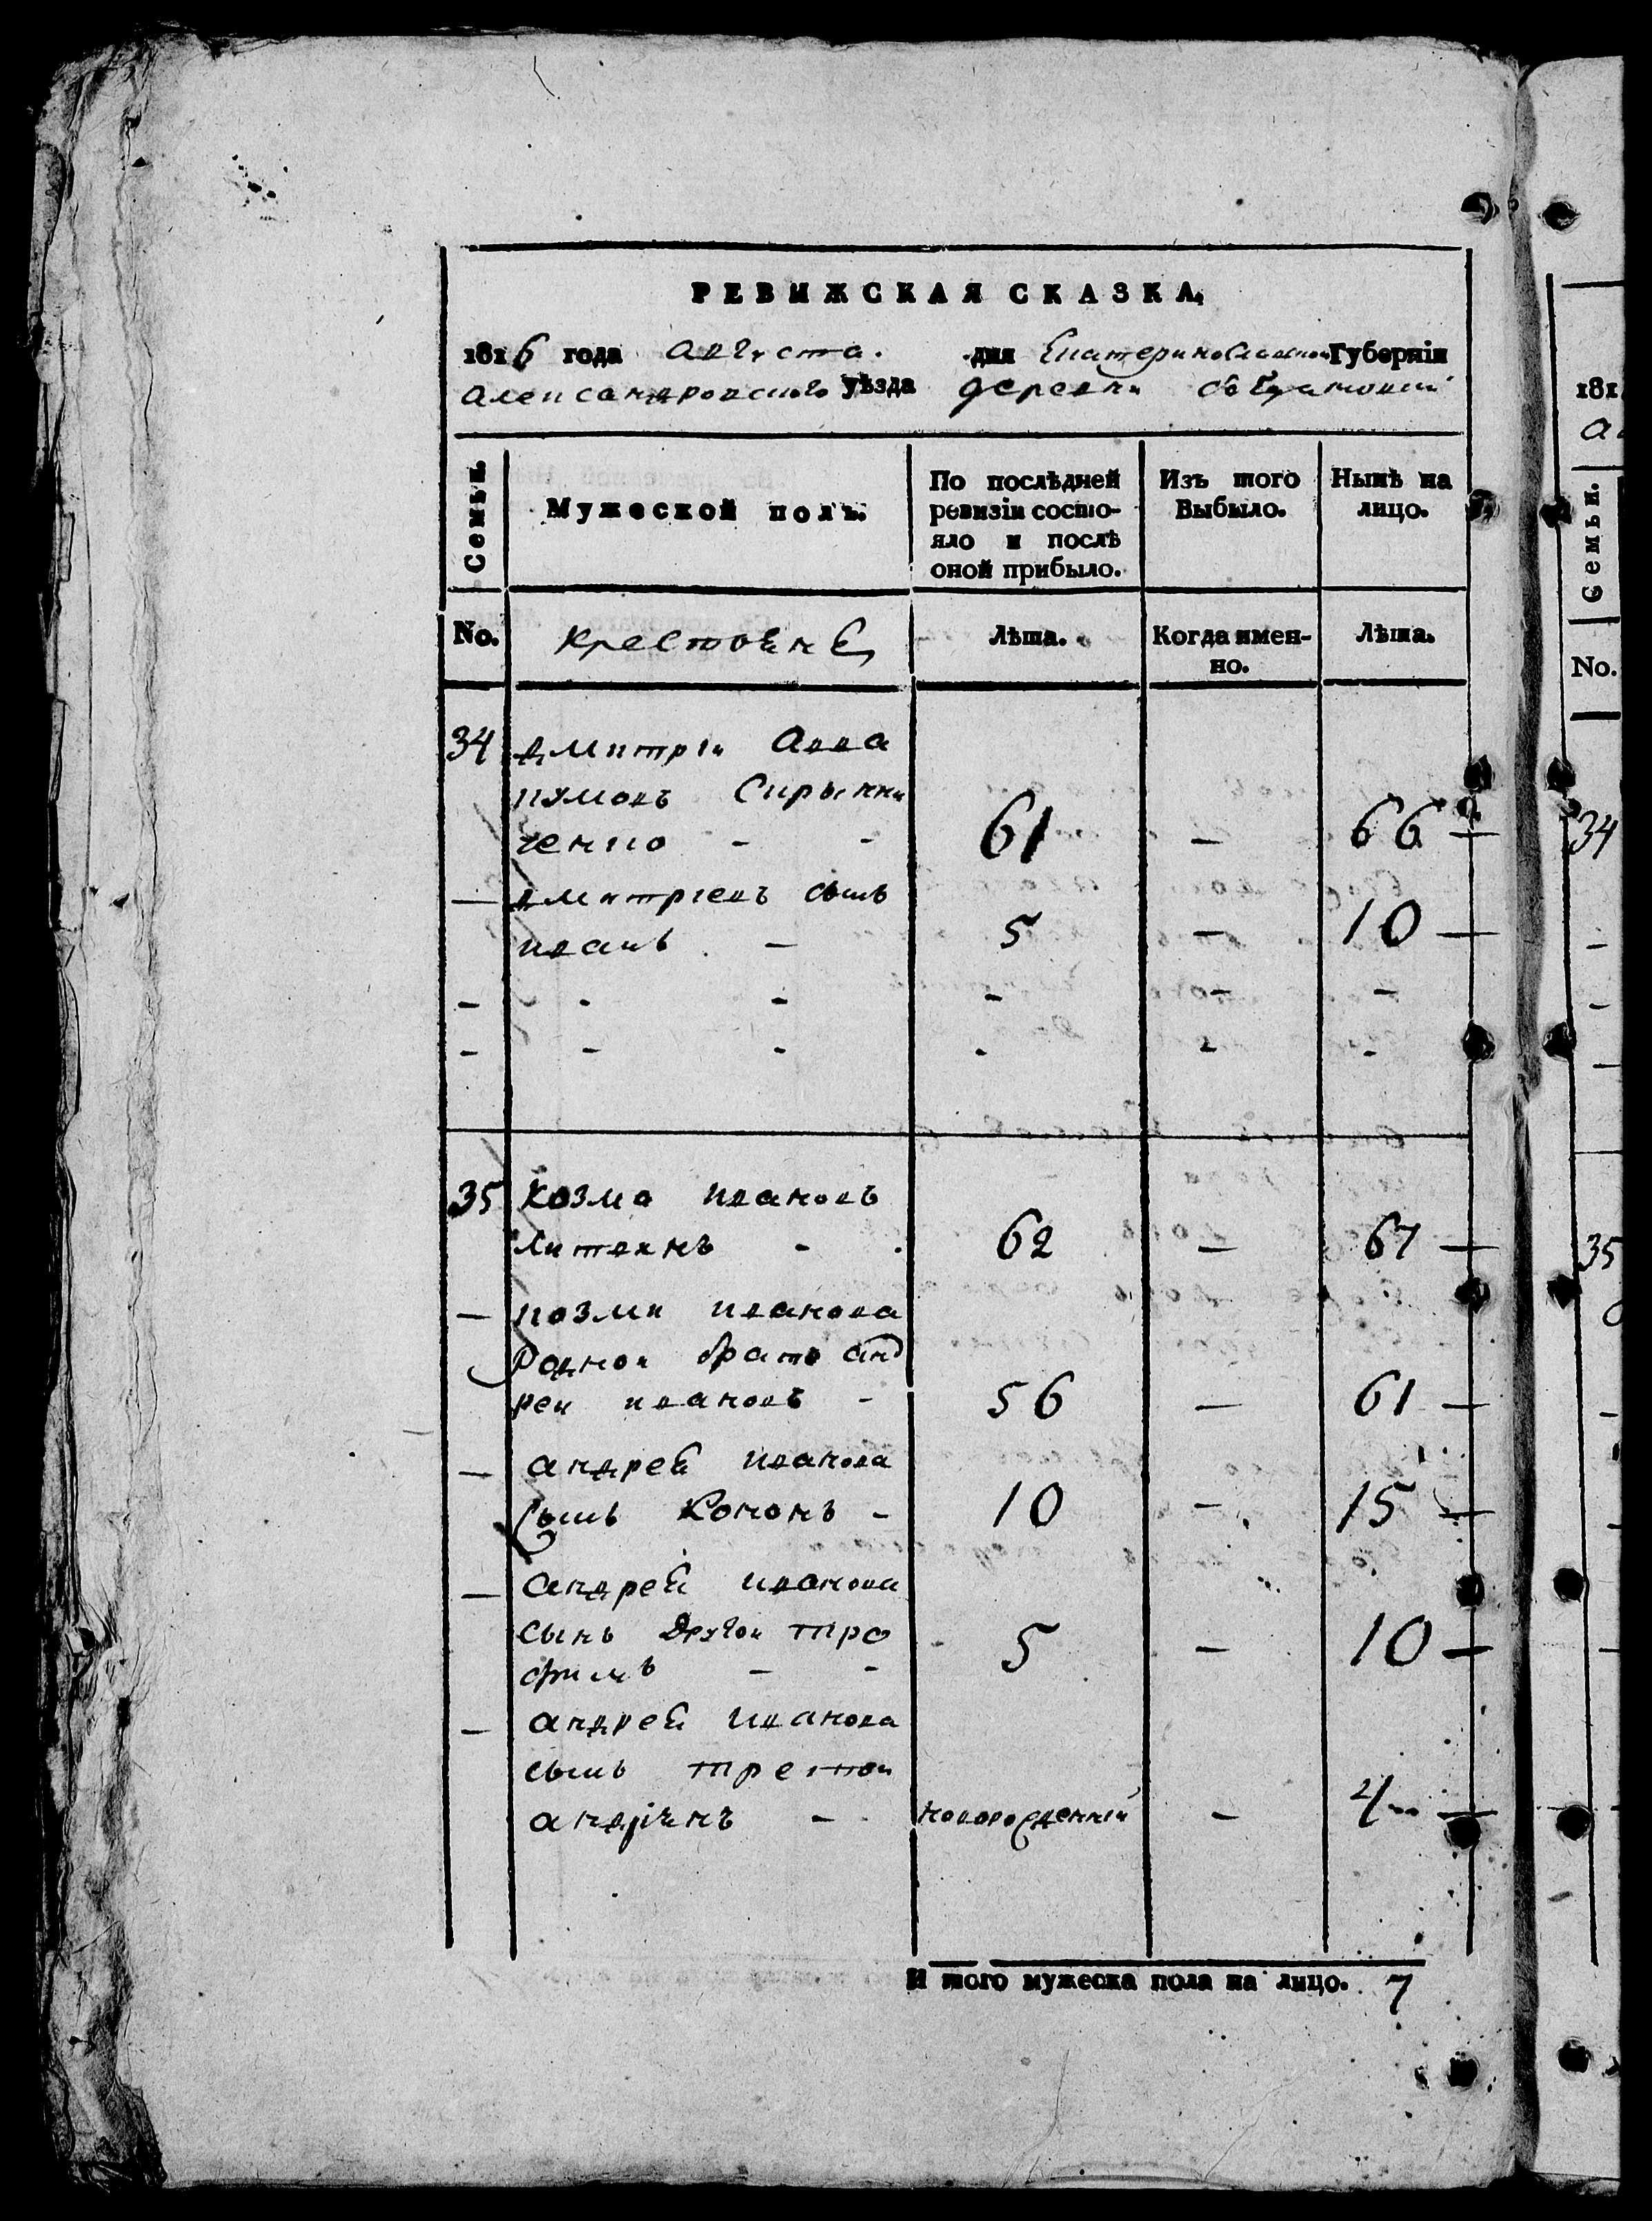 РЕВИЖСКАЯ СКАЗКА,
1816 года августа. дня Екатеринославской Губерніи
александровского уѣзда деревни
Семьи.
Мужеской полъ.
По послѣдней ревизіи состо-
яло и послѣ
оной прибыло.
Изъ того
Выбыло.
Нынѣ на
лицо.
No. крестьяне Лѣта. Когда имен-
но. Лѣта.
34 дмитрiи авва
кумовъ
ченко - - 61 - 66 -
- дмитрiевъ сынъ
иванъ - 5 - 10 -
- - - - - -
- - - - - -
35 козма ивановъ
литвинъ - - 62 - 67 -
- козми иванова
родной братъ анд
реи ивановъ - 56 - 61 -
- андрей иванова
сынъ кононъ - 10 - 15 -
- андрей иванова
сынъ другои тро
фимъ - - 5 - 10 -
- андрей иванова
сынъ третои
андріянъ - новорожденніи - 4 -
И того мужеска пола на лицо. 7
181
Семьи.
No.
34
35